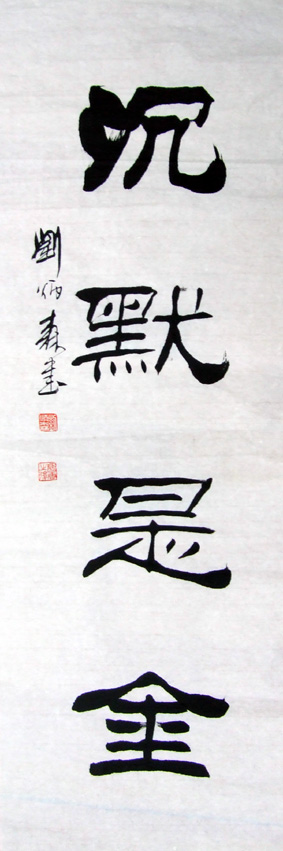 沉默是金
劉炳森書